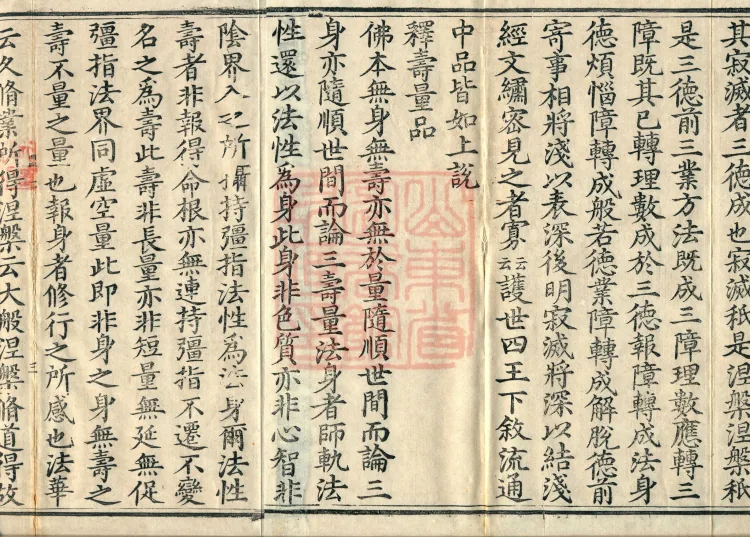 其寂滅者三德成也寂滅秖是涅槃涅槃秖
是三德前三業方法既成三障理數應轉三
障既其已轉理數成於三德報障轉成法身
德煩惱障轉成般若德業障轉成解脫德前
寄事相將淺以表深後明寂滅將深以結淺
經文繡密見之者寡云云護世四王下敘流通
中品皆如上說
釋壽量品
佛本無身無壽亦無於量隨順世間而論三
身亦隨順世間而論三壽量法身者師軌法
性還以法性為身此身非色質亦非心智非
陰界入之所攝持彊指法性為法身爾法性
壽者非報得命根亦無連持彊指不遷不變
名之為壽此壽非長量亦非短量無延無促
彊指法界同虛空量此即非身之身無壽之
壽不量之量也報身者修行之所感也法華
云久脩業所得涅槃云大般涅槃脩道得故
三